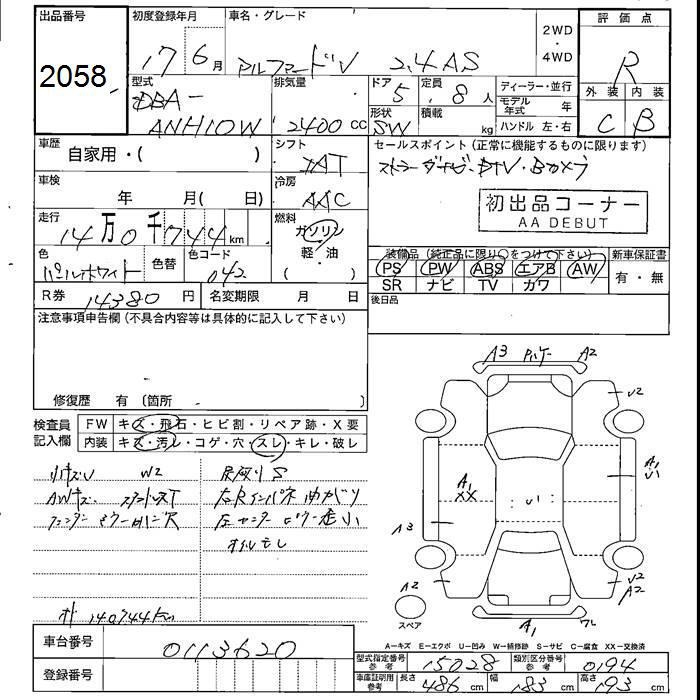 出品番号
2058
初度登録年月
17 6月
車名・グレード
アルファードV 2.4AS
2WD
・
4WD
評価点
R
外装 内装
C B
型式
DBA-
ANH10W
排気量
2400 CC
ドア
5
形状
SW
定員
8人
積載
kg
ディーラー・並行
モデル年式 年
ハンドル 左・右
車歴
自家用・( )
シフト
IAT
セールスポイント (正常に機能するものに限ります)
初出品コーナー
AA DEBUT
車検
年 月( 日)
冷房
AAC
走行
14万0千744km
燃料
ガソリン
軽・油
( )
色
パールホワイト
色替
色コード
042
装備品 (純正品に限り○をつけて下さい)
PS PW ABS エアB AW
SR ナビ TV カワ
新車保証書
有・無
R券 14380円
名変期限 月 日
後日品
注意事項申告欄 (不具合内容等は具体的に記入して下さい)
修復歴 有 (箇所 )
検査員
記入欄
FW キズ・飛石・ヒビ割・リペア跡・X要
内装 キズ・汚レ・コゲ・穴・スレ・キレ・破レ
W2
S
オイルモレ
140744km
A3 A2
U2
A1
XX
U1
A1
U1
A3
A2
U2
A2
スペア
A1
A=キズ E=エクボ U=凹み W=補修跡 S=サビ C=腐食 XX=交換済
車台番号
0113620
登録番号
型式指定番号
参考
15028
類別区分番号
参考
0194
車庫証明用
参考
長さ 486 cm
幅 183 cm
高さ 193 cm